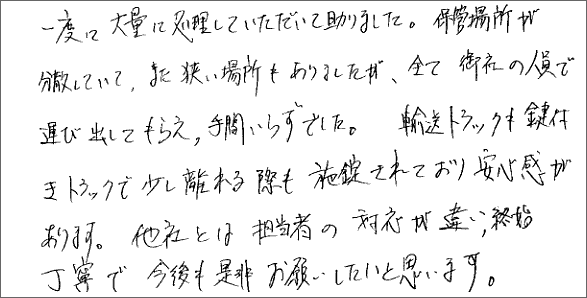 一度に大量に処理していただいて助りました。保管場所が
分散していて、また狭い場所もありましたが、全て御社の人員で
運び出してもらえ、手間いらずでした。 輸送トラックも鍵付
きトラックで少し離れる際も施錠されており安心感が
あります。他社とは担当者の対応が違い、終始
丁寧で今後も是非お願いしたいと思います。